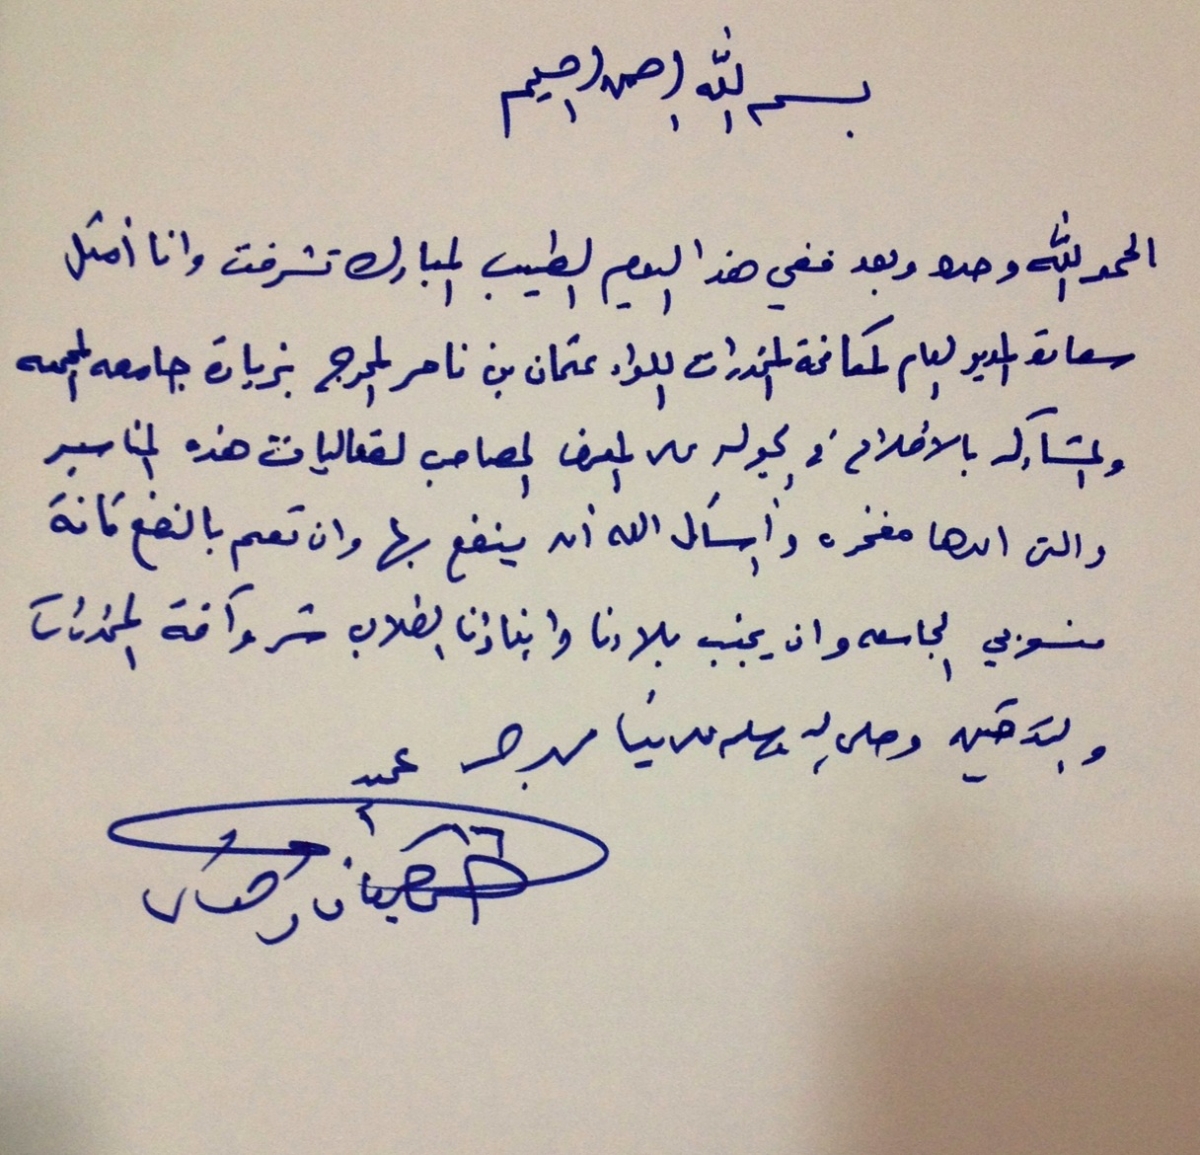 بسم الله الرحمن الرحيم
الحمد لله وحده وبعد ففي هذا اليوم الطيب المبارك تشرفت وانا أمثل
سعادة المدير العام لمكافحة المخدرات اللواء عثمان بن ناصر المحرج بزيارة جامعه المجمعه
والمشاركه في الجوله على المعرض المصاحب لفعاليات هذه المناسبه
والتي مفخره وأسأل الله أن ينفع بها وان تعم بالنفع كافة
منسوبي الجامعه وان يجنب بلادنا وابناؤنا الطلاب شر وآفة المخدرات
والتدخين وصلى الله وسلم على نبينا محمد
عميد